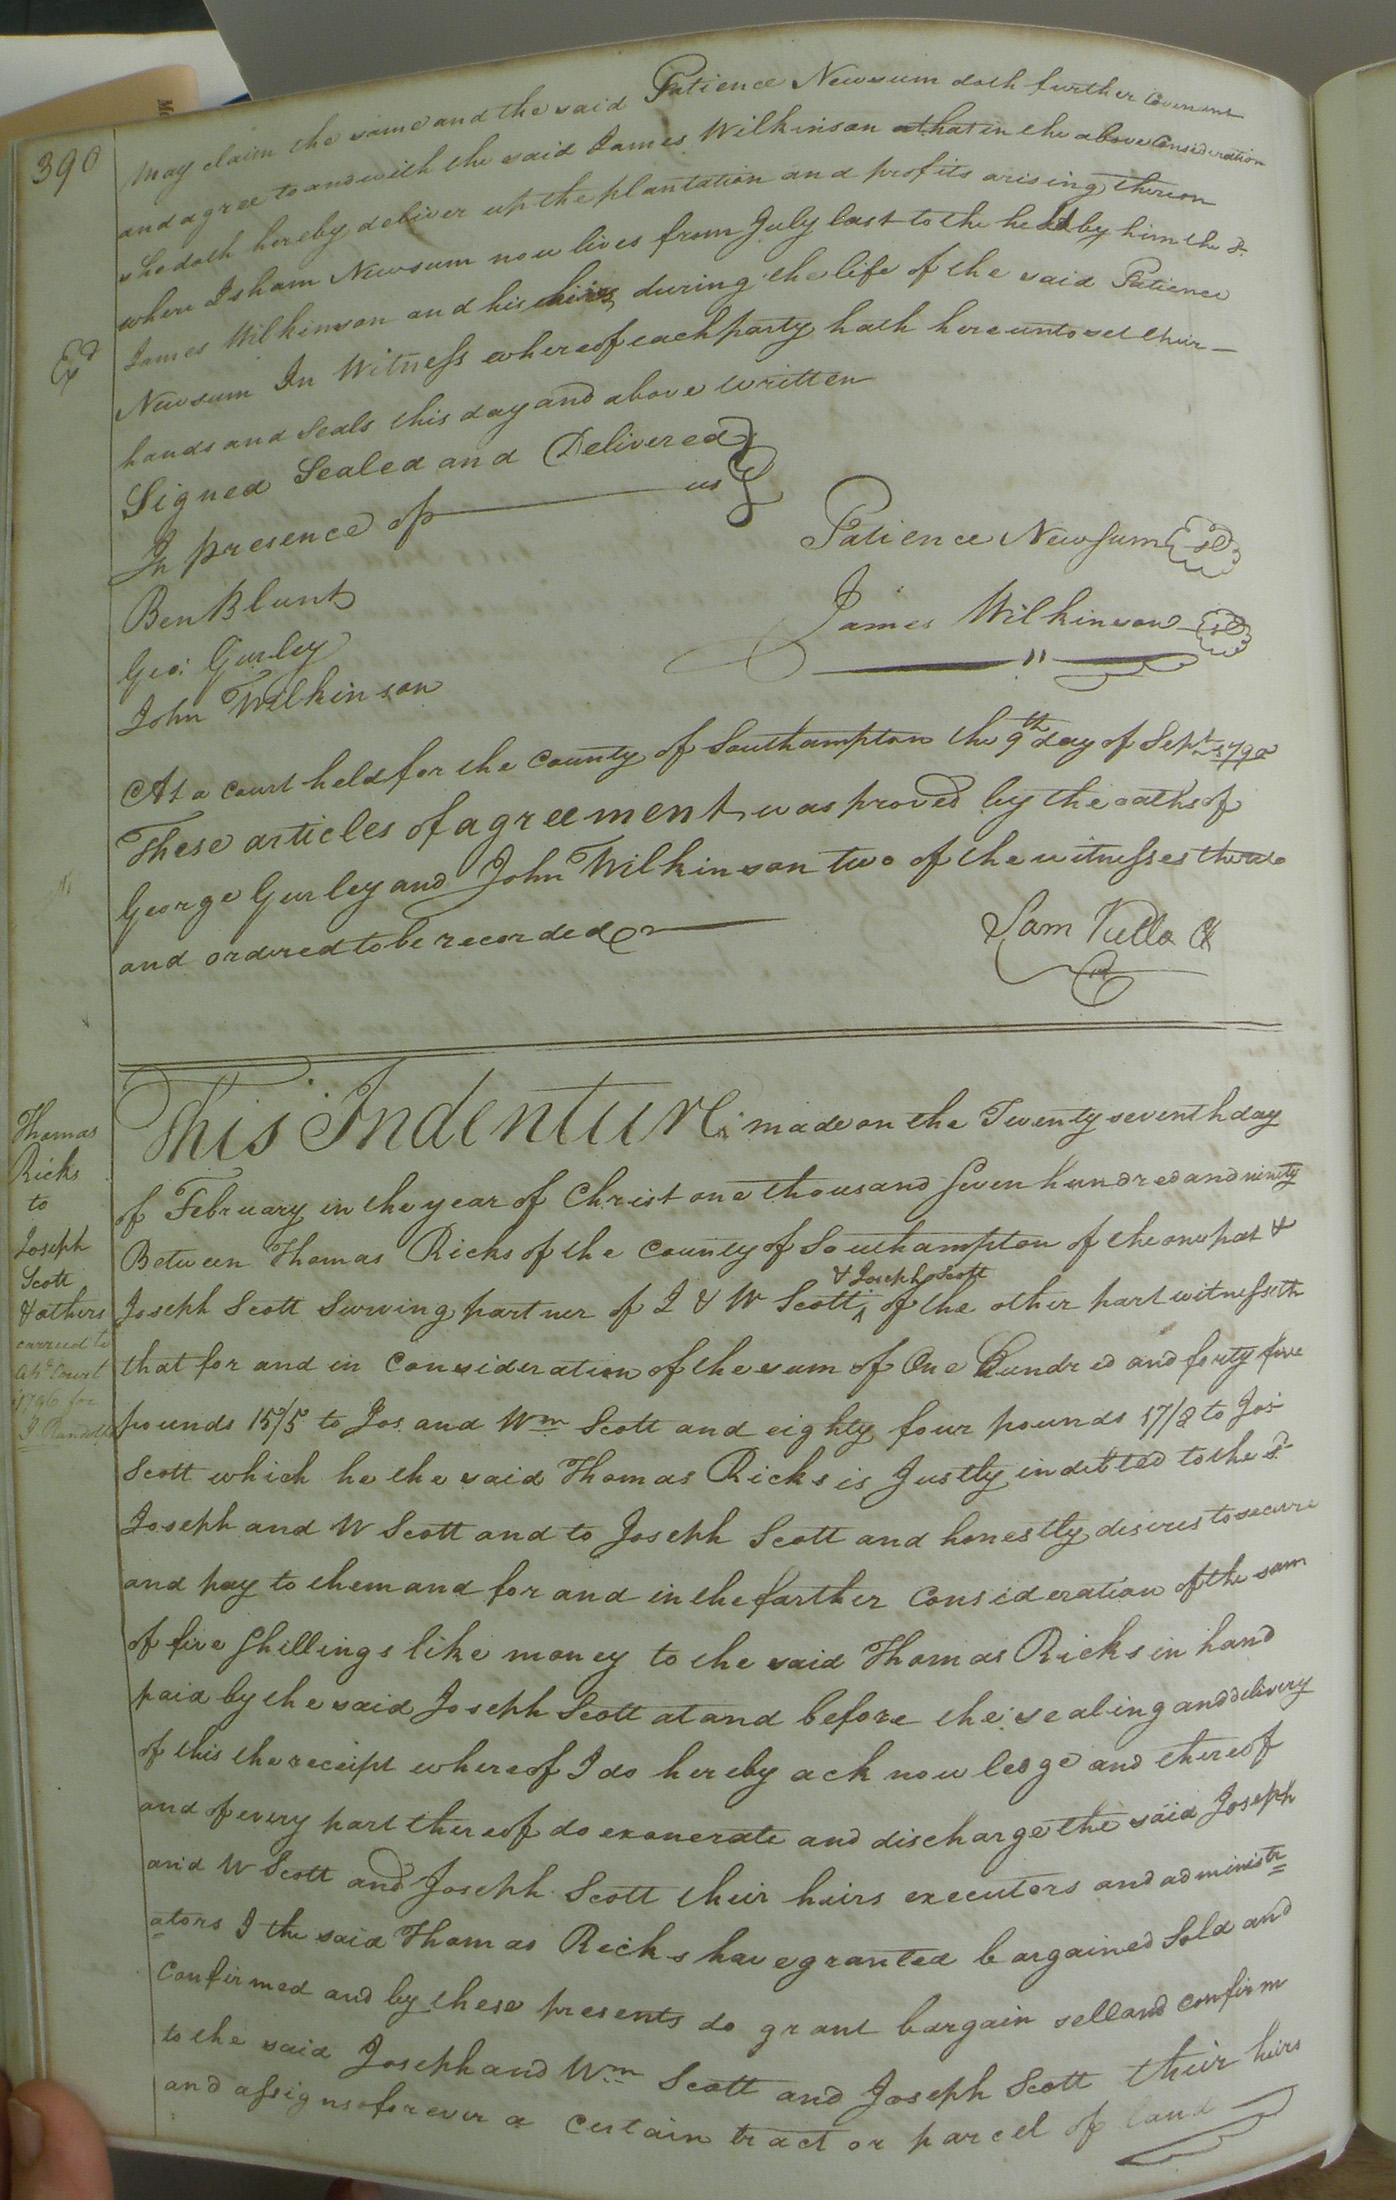 390
may claim the same and the said Patience Newsum doth further Covenant
and agree to and with the said James Wilkinson that in the above Consideration
she doth hereby deliver up the plantation and profits arising thereon
where Isham Newsum now lives from July last to the held by him the sd.
James Wilkinson and his heirs during the life of the said Patience
Newsum In Witness whereof each party hath hereunto set their
hands and seals this day and above written
Exd
Signed Sealed and Delivered
In presence of us
Patience Newsum
James Wilkinson
Ben Blunt
Geo: Gurley
John Wilkinson
At a court held for the county of Southampton the 9th day of Sept. 1790
These articles of agreement was proved by the oaths of
George Gurley and John Wilkinson two of the witnesses thereto
and ordered to be recorded
Sam Kello Ck
Thomas
Ricks
to
Joseph
Scott
& others
carried to
Court
1796 for
This Indenture made on the Twenty seventh day
of February in the year of Christ one thousand seven hundred and ninety
Between Thomas Ricks of the County of Southampton of the one part &
Joseph Scott Surving partner of J & W Scott & Joseph Scott of the other part witnesseth
that for and in consideration of the sum of One Hundred and forty five
pounds 15/5 to Jos. and Wm Scott and eighty four pounds 17/8 to Jos.
Scott which he the said Thomas Ricks is Justly indetted to the sd.
Joseph and W Scott and to Joseph Scott and honestly desires to secure
and pay to them and for and in the farther Consideration of the sum
of five shillings like money to the said Thomas Ricks in hand
paid by the said Joseph Scott at and before the sealing and delivery
of this the receipt whereof I do hereby acknowledge and thereof
and of every part thereof do exonerate and discharge the said Joseph
and W Scott and Joseph Scott their heirs executors and administr
ators I the said Thomas Ricks have granted bargained Sold and
Confirmed and by these presents do grant bargain sell and confirm
to the said Joseph and Wm Scott and Joseph Scott their heirs
and assigns forever a certain tract or parcel of land